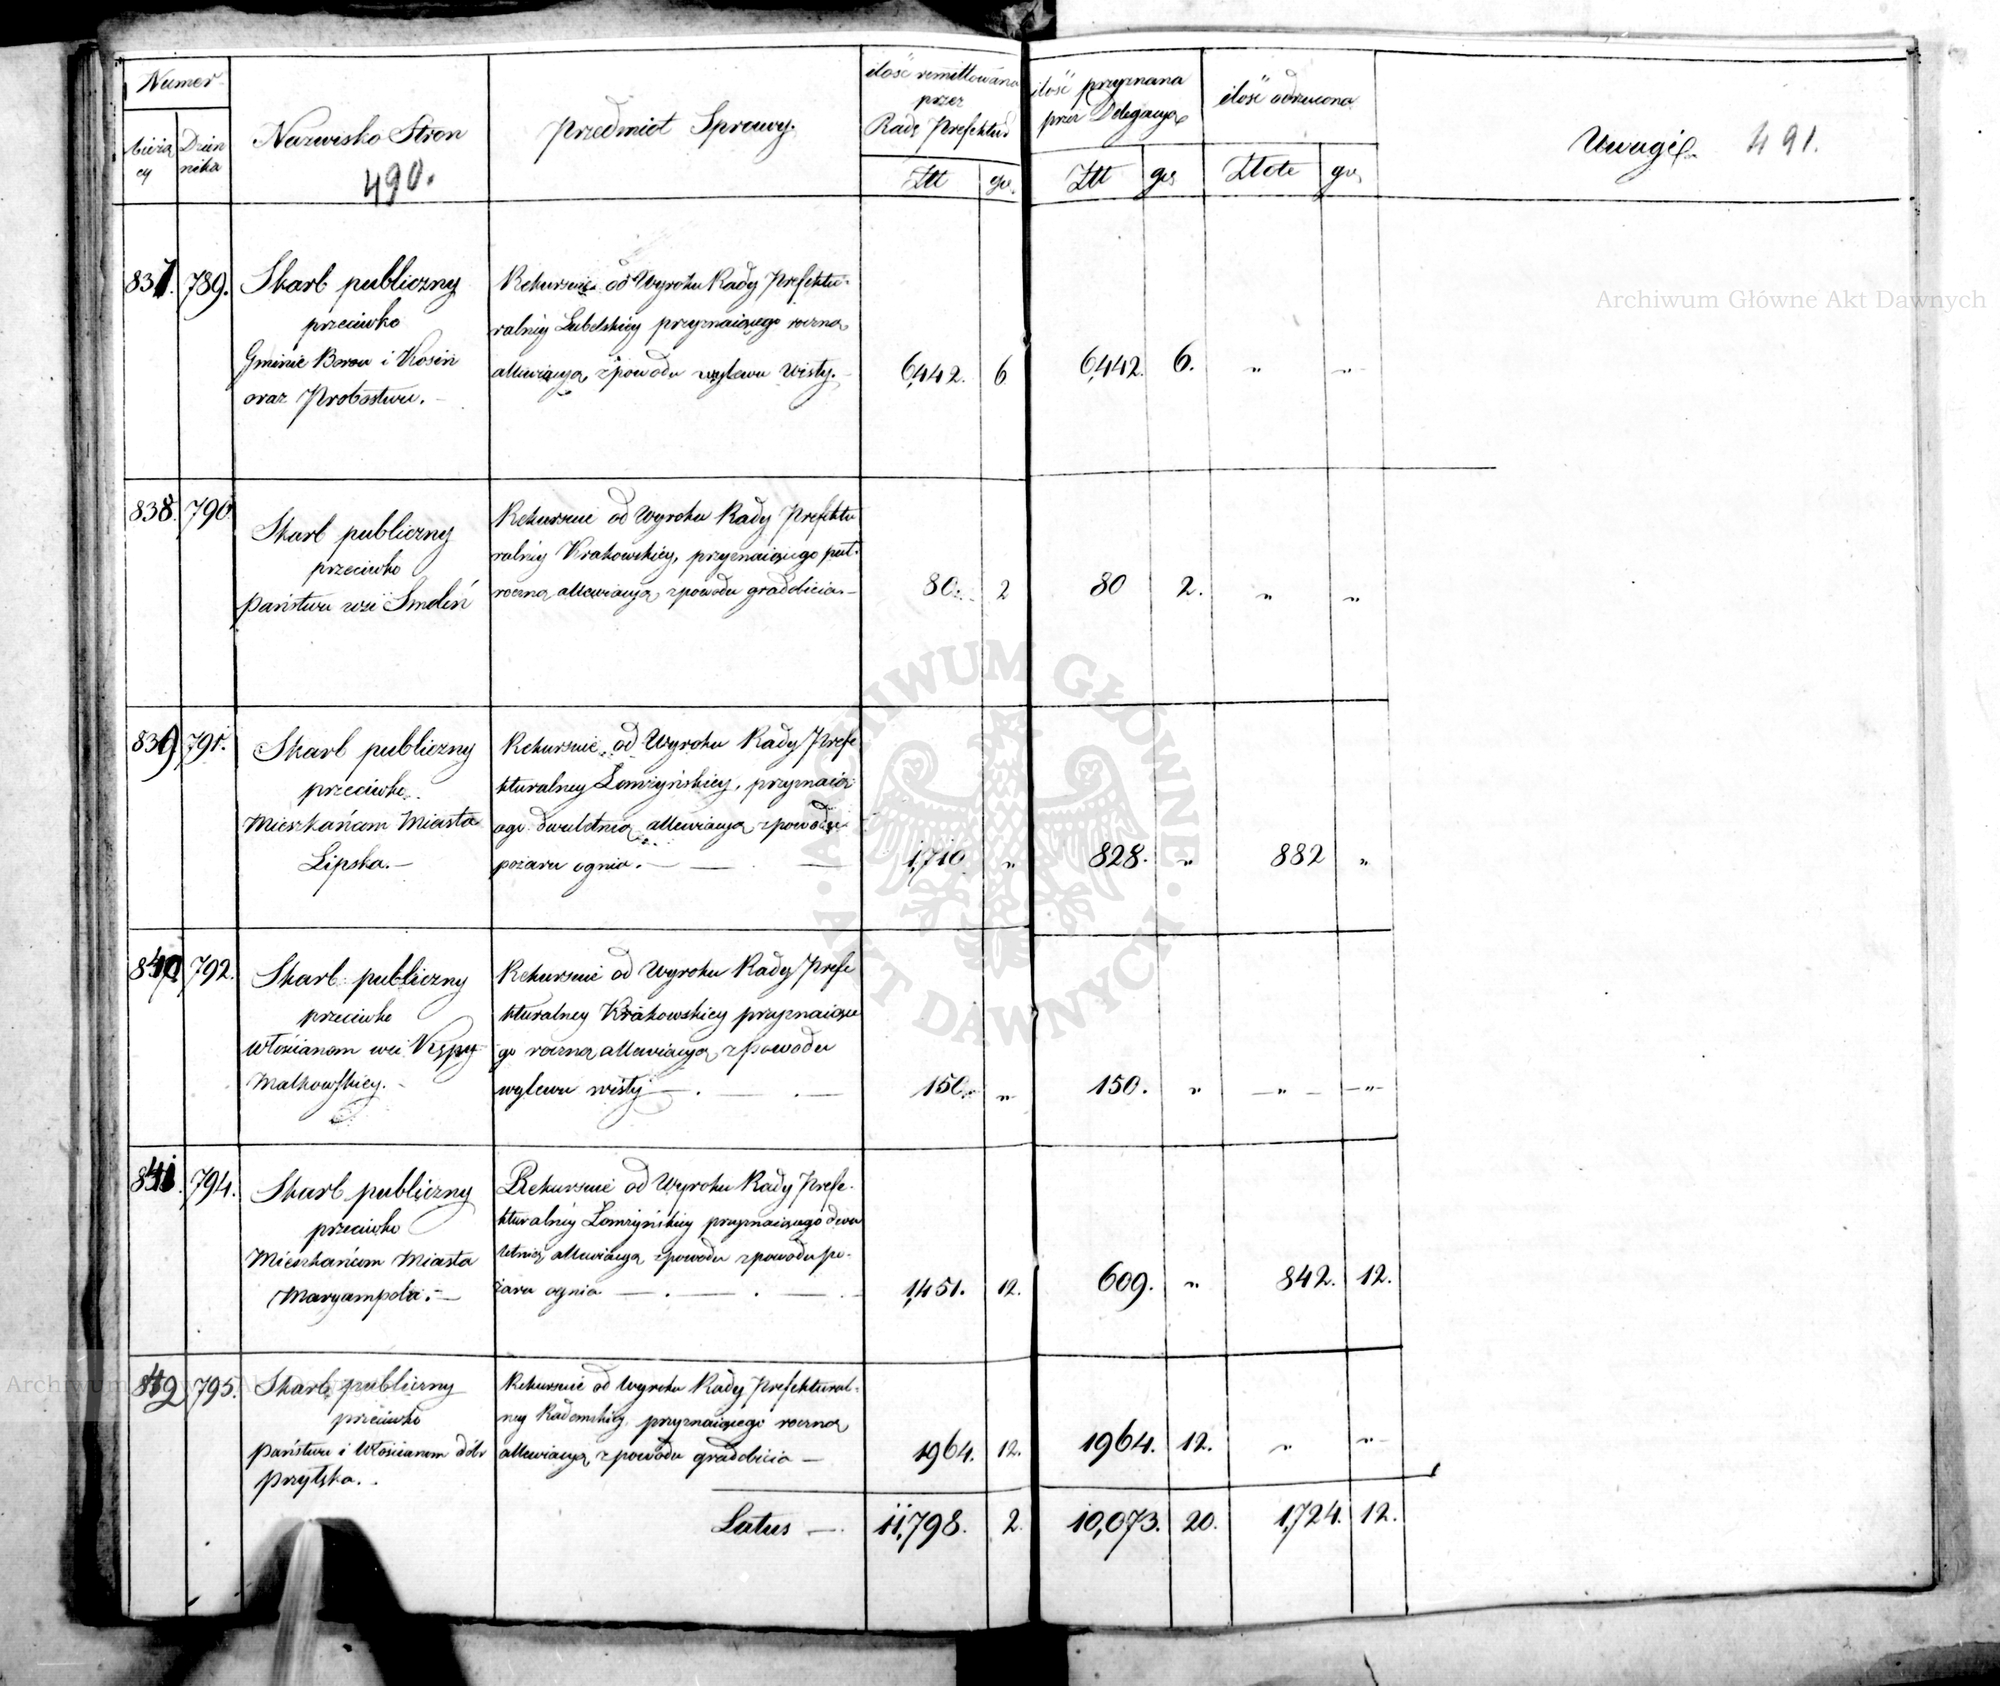 Numer
Bieżą
cy
Dzien
nika
Nazwisko Stron
490.
Przedmiot Sprawy.
ilość remittowana
przez
Radę Prefektur
Złł gr.
ilość przyznana
przez Delegacyą
Złł gr
ilość odrzucona
Złote gr.
Uwagi 491.
837. 789.
Skarb publiczny
przeciwko
Gminie Borou i Kosin
oraz Probostwu.
Rekursuie od Wyroku Rady Prefektu-
ralney Lubelskiey przyznaiącego roczną
allewiacyą z powodu wylewu Wisły.
6,442. 6 6,442. 6. " "
838. 790
Skarb publiczny
przeciwko
Państwu wsi Smoleń
Rekursuie od Wyroku Rady Prefektu
ralney Krakowskiey, przyznaiącego puł-
roczną allewiacyą z powodu gradobicia.—
80. 2 80 2. " "
839 791.
Skarb publiczny
przeciwko
Mieszkańcom Miasta
Lipska.—
Rekursuie od Wyroku Rady Prefe
kturalney Łomżyńskiey, przyznaią
ago dwuletnią allewiacyą z powodu
pożaru ognia.—
1,710 " 828. " 882 "
840 792.
Skarb publiczny
przeciwko
Włościanom wsi Kępy
Malkowskiey.
Rekursuie od Wyroku Rady Prefe
kturalney Krakowskiey przyznaiące
go roczną allewiacyą z powodu
wylewu wisły —
150. " 150. " — " — — " —
841. 794.
Skarb publiczny
przeciwko
Mieszkańcom Miasta
Maryampola.—
Rekursuie od Wyroku Rady Prefe-
kturalney Łomżyńskiey przyznaiącego dwu
letnią allewiacyą z powodu z powodu po-
żaru ognia —
1,451. 12. 609. " 842. 12.
842 795.
Skarb publiczny
przeciwko
Państwu i Włościanom dóbr
Przytyka.
Rekursuie od Wyroku Rady Prefektural-
ney Radomskiey, przyznaiącego roczną
allewiacyą z powodu gradobicia —
1964. 12. 1964. 12. " "
Latus —. 11,798. 2. 10,073. 20. 1,724. 12.
Archiwum Główne Akt Dawnych
ARCHIWUM GŁÓWNE
AKT DAWNYCH